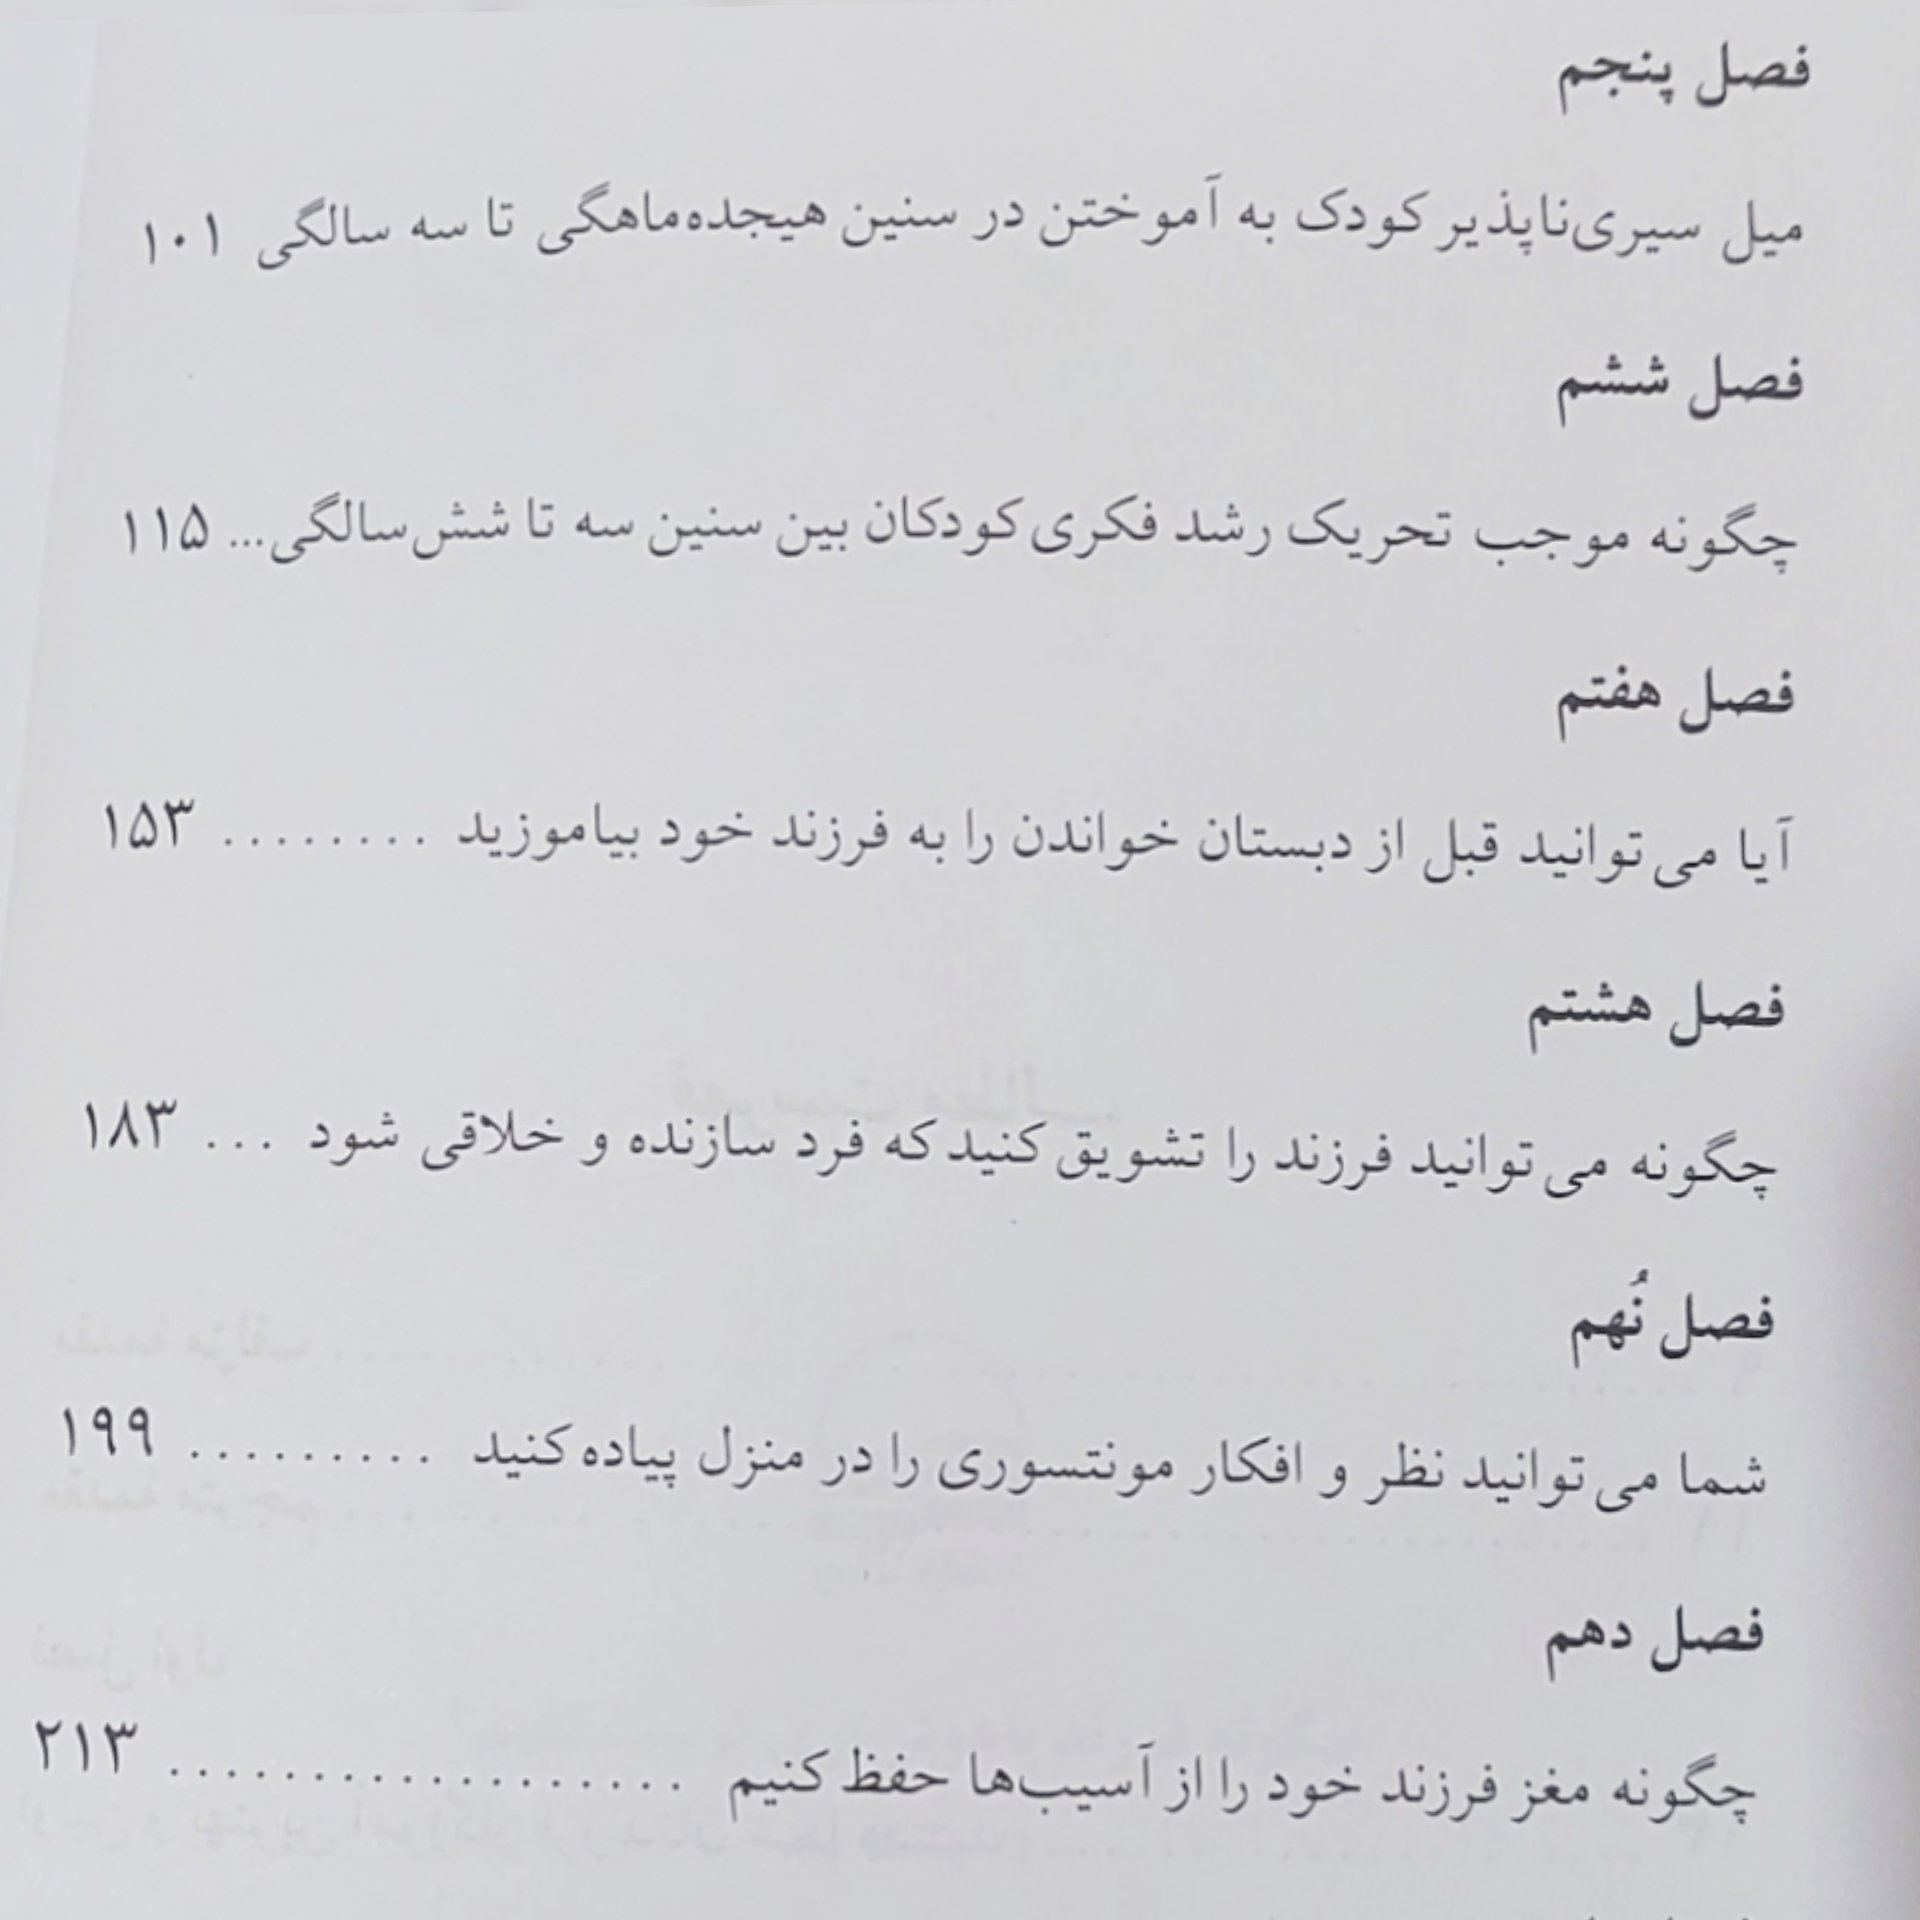 فصل پنجم
میل سیری‌ناپذیر کودک به آموختن در سنین هیجده‌ماهگی تا سه سالگی ۱۰۱
فصل ششم
چگونه موجب تحریک رشد فکری کودکان بین سنین سه تا شش‌سالگی... ۱۱۵
فصل هفتم
آیا می‌توانید قبل از دبستان خواندن را به فرزند خود بیاموزید ........ ۱۵۳
فصل هشتم
چگونه می‌توانید فرزند را تشویق کنید که فرد سازنده و خلاقی شود ... ۱۸۳
فصل نُهم
شما می‌توانید نظر و افکار مونتسوری را در منزل پیاده کنید ......... ۱۹۹
فصل دهم
چگونه مغز فرزند خود را از آسیب‌ها حفظ کنیم .................. ۲۱۳